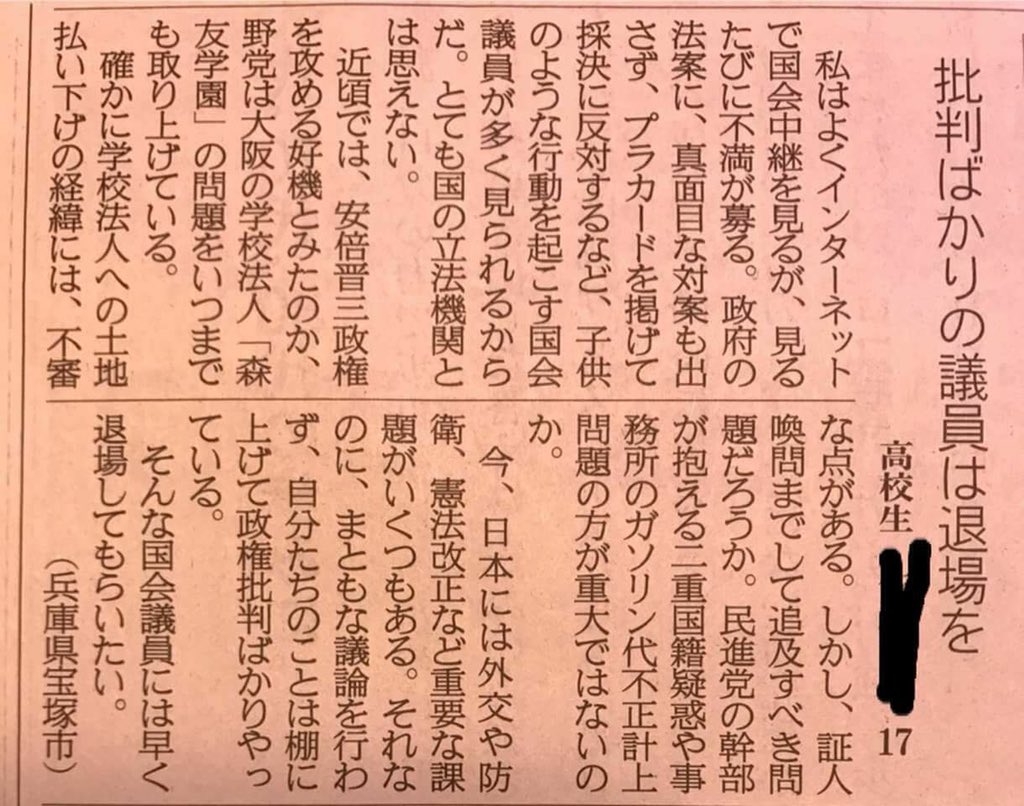 批判ばかりの議員は退場を
高校生
17
私はよくインターネット
で国会中継を見るが、見る
たびに不満が募る。政府の
法案に、真面目な対案も出
さず、プラカードを掲げて
採決に反対するなど、子供
のような行動を起こす国会
議員が多く見られるから
だ。とても国の立法機関と
は思えない。
近頃では、安倍晋三政権
を攻める好機とみたのか、
野党は大阪の学校法人「森
友学園」の問題をいつまで
も取り上げている。
確かに学校法人への土地
払い下げの経緯には、不審
な点がある。しかし、証人
喚問までして追及すべき問
題だろうか。民進党の幹部
が抱える二重国籍疑惑や事
務所のガソリン代不正計上
問題の方が重大ではないの
か。
今、日本には外交や防
衛、憲法改正など重要な課
題がいくつもある。それな
のに、まともな議論を行わ
ず、自分たちのことは棚に
上げて政権批判ばかりやっ
ている。
そんな国会議員には早く
退場してもらいたい。
（兵庫県宝塚市）